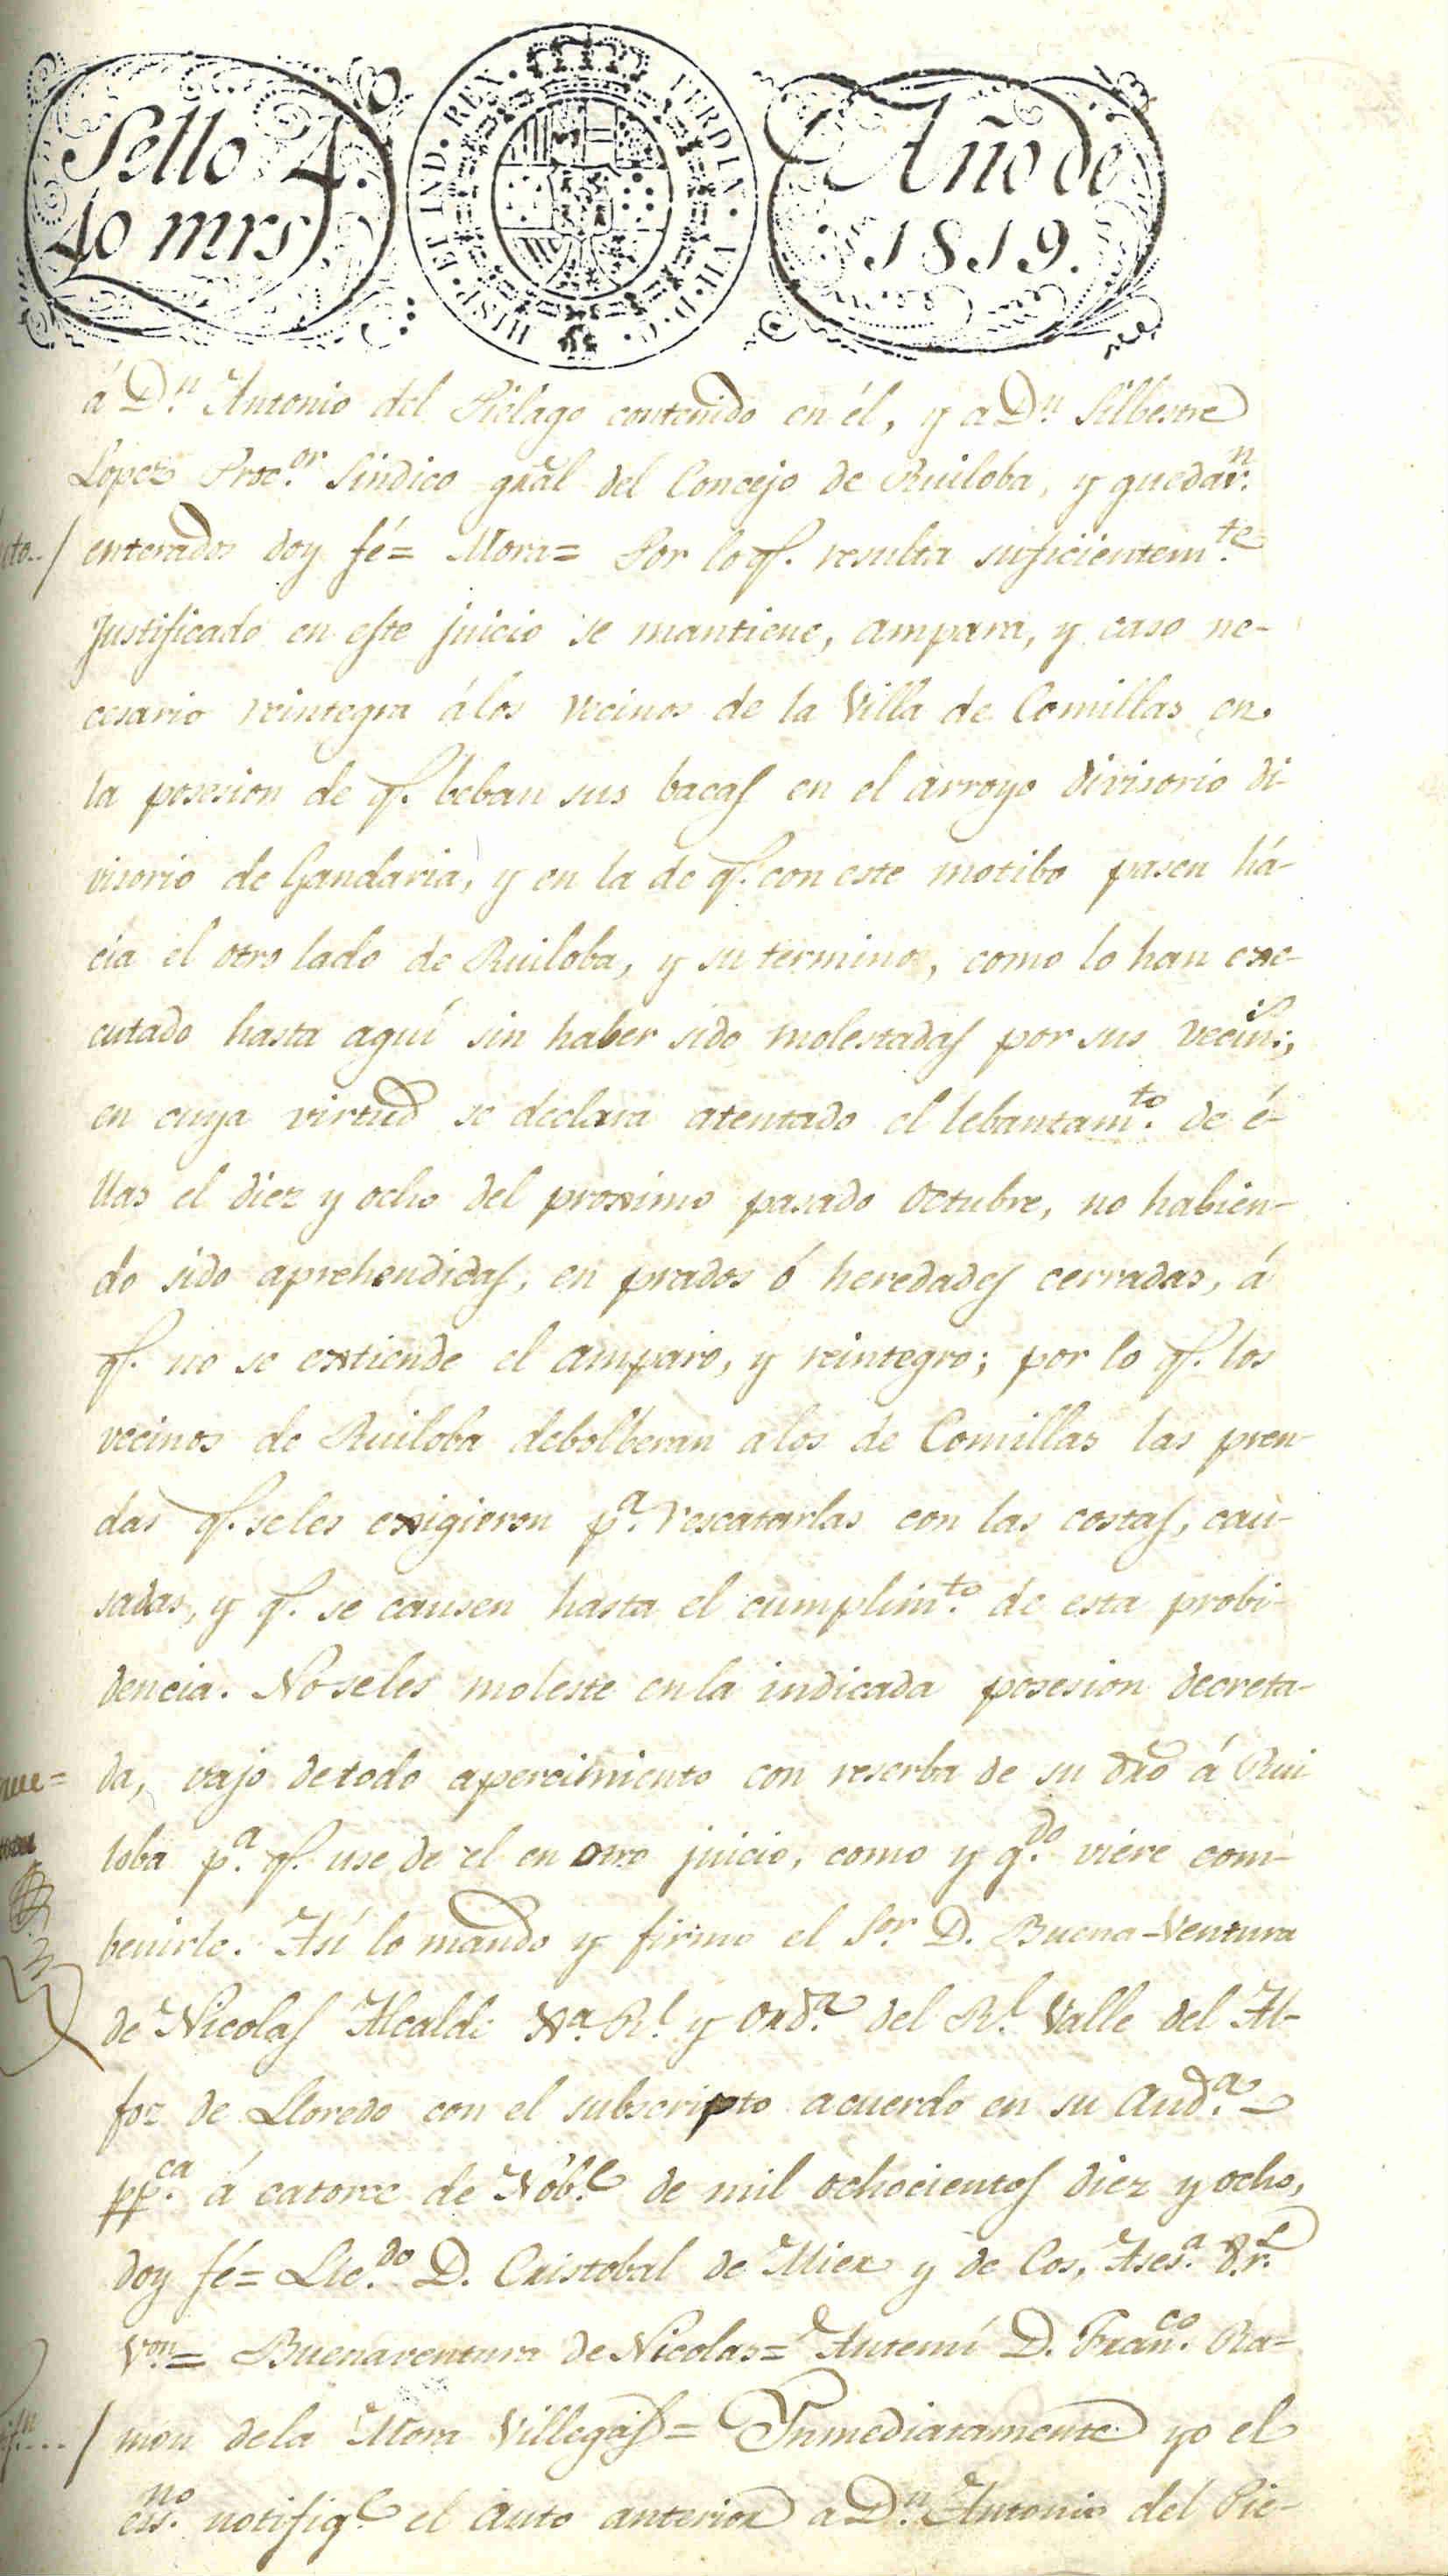 Sello 4.
40 mrs
HISP. ET IND. REX.
FERDIN. VII. D. G.
Año de
1819.
á Dn. Antonio del Piélago contenido en él, y a Dn. Silbestre
Lopez Proc.or Sindico gral del Concejo de Ruiloba, y quedar.n
enterados doy fé= Mora= Por lo q.e resulta suficientem.te
Justificado en este juicio se mantiene, ampara, y caso ne-
cesario reintegra á los vecinos de la Villa de Comillas en
la posesion de q.e beban sus bacas en el arroyo divisorio di
visorio de Gandaria, y en la de q.e con este motibo pasen há-
cia el otro lado de Ruiloba, y su terminos, como lo han exe-
cutado hasta aquí sin haber sido molestadas por sus vecin.s;
en cuya virtud se declara atentado el lebantam.to de é-
llas el diez y ocho del proximo pasado Octubre, no habien-
do sido aprehendidas, en prados ó heredades cerradas, á
q.e no se extiende el amparo, y reintegro; por lo q.e los
vecinos de Ruiloba debolberan a los de Comillas las pren-
das q.e se les exigieron p.a rescatarlas con las costas, cau-
sadas, y q.e se causen hasta el cumplim.to de esta probi-
dencia. No se les moleste en la indicada posesion decreta-
da, vajo de todo apercimiento con reserba de su dro á Rui
loba p.a q.e use de el en otro juicio, como y q.do viere com-
benirle. Así lo mando y firmo el S.or D. Buena-Ventura
de Nicolas Alcalde Xa. R.l y Ord.o del R.l Valle del Al-
foz de Lloredo con el subscripto acuerdo en su Aud.a
pp.ca á catorce de Nob.e de mil ochocientos diez y ocho,
doy fé= Lic.do D. Cristobal de Mier y de Cos, Ases.r
V.on= Buenaventura de Nicolas= Antemí D. Fran.co Ra-
mon de la Mora Villegas= Inmediatamente yo el
ess.no notifiq.e el auto anterior a Dn. Antonio del Pié-